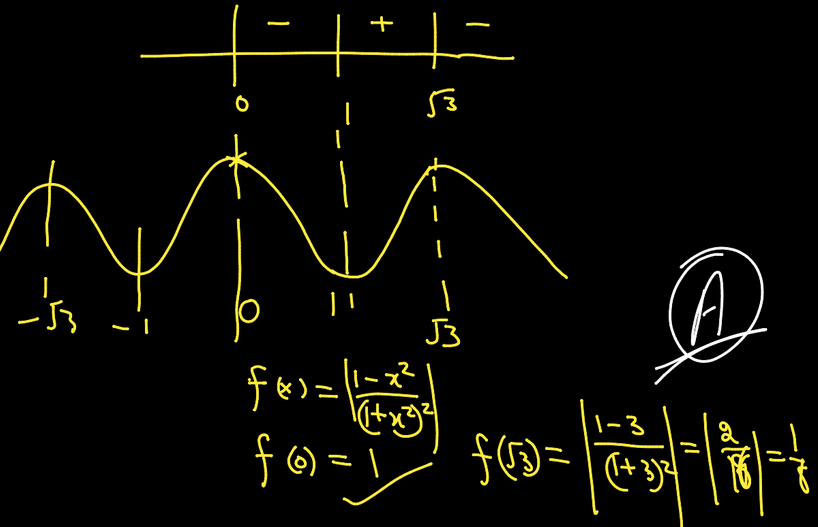 − + −
0 1 √3
−√3 −1 0 1 √3
A
f(x) = |1−x²/(1+x²)²|
f(0) = 1 f(√3) = |1−3/(1+3)²| = |2/16| = 1/8